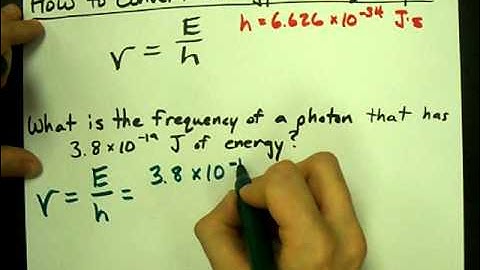 How to Conver
ν = E/h
h = 6.626 × 10⁻³⁴ J·s
What is the frequency of a photon that has
3.8 × 10⁻¹⁹ J of energy?
ν = E/h = 3.8 × 10⁻